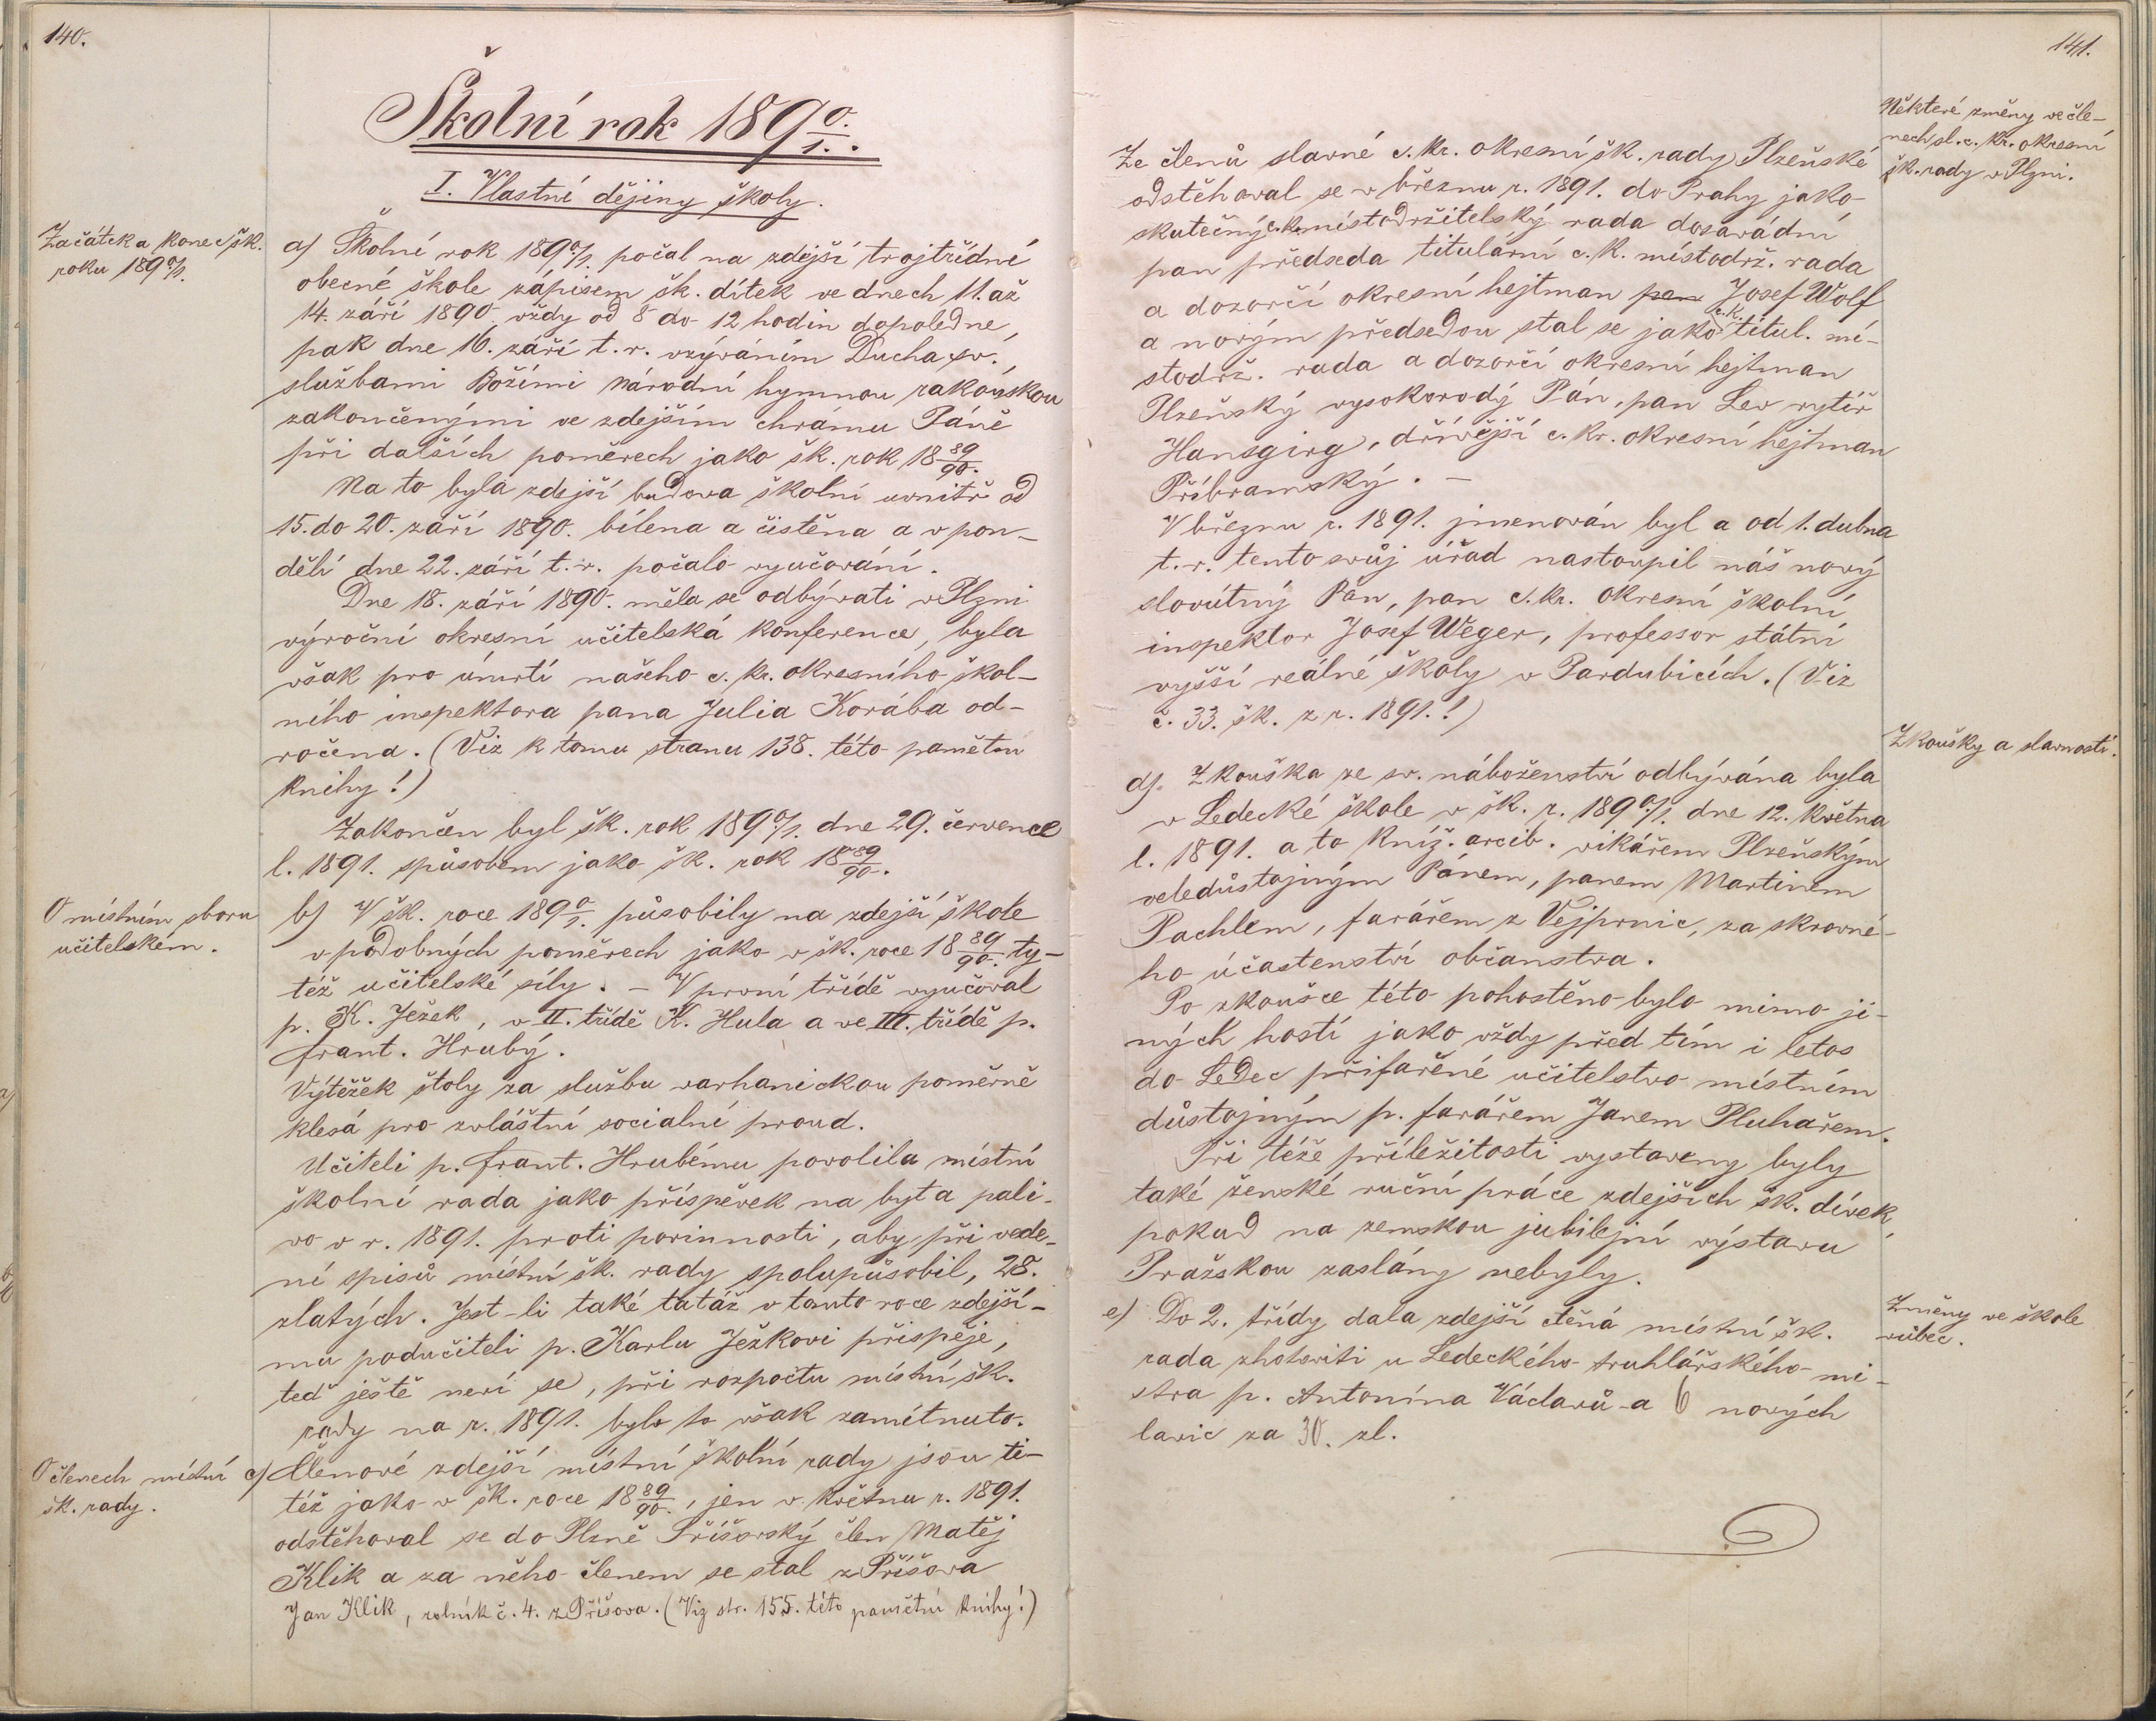 140.
Školní rok 189 0/1.
I. Vlastní dějiny školy.
Začátek a konec šk.
roku 189 0/1.
a) Školní rok 189 0/1. počal na zdejší trojtřídní
obecné škole zápisem šk. dítek ve dnech 11. až
14. září 1890. vždy od 8 do 12 hodin dopoledne,
pak dne 16. září t. r. vzýváním Ducha sv.,
službami Božími národní hymnou rakouskou
zakončenými ve zdejším chrámu Páně
při dalších poměrech jako šk. rok 18 89/90.
Na to byla zdejší budova školní uvnitř od
15. do 20. září 1890. bílena a čistěna a v pon-
dělí dne 22. září t. r. počalo vyučování.
Dne 18. září 1890. měla se odbývati v Plzni
výroční okresní učitelská konference, byla
však pro úmrtí našeho c. kr. okresního škol-
ního inspektora pana Julia Korába od-
ročena. (Viz k tomu stranu 138. této pamětní
knihy!)
Zakončen byl šk. rok 189 0/1. dne 29. července
l. 1891. spůsobem jako šk. rok 18 89/90.
O místním sboru
učitelském.
b) V šk. roce 189 0/1. působily na zdejší škole
v podobných poměrech jako v šk. roce 18 89/90. ty-
též učitelské síly. – V první třídě vyučoval
p. K. Ježek, v II. třídě K. Hula a ve III. třídě p.
Frant. Hrubý.
Výtěžek štoly za službu varhanickou poměrně
klesá pro zvláštní socialní proud.
Učiteli p. Frant. Hrubému povolila místní
školní rada jako příspěvek na byt a pali-
vo v r. 1891. proti povinnosti, aby při vede-
ní spisů místní šk. rady spolupůsobil, 28.
zlatých. Jest-li také tatáž v tomto roce zdejší-
mu podučiteli p. Karlu Ježkovi přispěje,
teď ještě neví se, při rozpočtu místní šk.
rady na r. 1891. bylo to však zamítnuto.
O členech místní
šk. rady.
c) Členové zdejší místní školní rady jsou ti-
též jako v šk. roce 18 89/90., jen v květnu r. 1891.
odstěhoval se do Plzně Příšovský člen Matěj
Klik a za něho členem se stal z Příšova
Jan Klik, rolník č. 4. z Příšova. (Viz str. 155. této pamětní knihy!)
141.
Některé změny ve čle-
nech sl. c. kr. okresní
šk. rady v Plzni.
Ze členů slavné c. kr. okresní šk. rady Plzeňské
odstěhoval se v březnu r. 1891. do Prahy jako
skutečný c. k. místodržitelský rada dosavádní
pan předseda titulární c. k. místodrž. rada
a dozorčí okresní hejtman pan Josef Wolf
a novým předsedou stal se jako c. k. titul. mí-
stodrž. rada a dozorčí okresní hejtman
Plzeňský vysokorodý Pán, pan Lev rytíř
Hansgirg, dřívější c. kr. okresní hejtman
Příbramský. –
V březnu r. 1891. jmenován byl a od 1. dubna
t. r. tento svůj úřad nastoupil náš nový
slovútný Pán, pan c. kr. okresní školní
inspektor Josef Weger, professor státní
vyšší reálné školy v Pardubicích. (Viz
č. 33. šk. z r. 1891.!)
Zkoušky a slavnosti.
d). Zkouška ze sv. náboženství odbývána byla
v Ledecké škole v šk. r. 189 0/1. dne 12. května
l. 1891. a to kníž. arcib. vikářem Plzeňským
veledůstojným Pánem, panem Martinem
Pachlem, farářem z Vejprnic, za skrovné-
ho účastenství občanstva.
Po zkoušce této pohostěno bylo mimo ji-
ných hostí jako vždy před tím i letos
do Ledec přifařené učitelstvo místním
důstojným p. farářem Janem Pluhařem.
Při téže příležitosti vystaveny byly
také ženské ruční práce zdejších šk. dívek,
pokud na zemskou jubilejní výstavu
Pražskou zaslány nebyly.
Změny ve škole
vůbec.
e) Do 2. třídy dala zdejší ctěná místní šk.
rada zhotoviti u Ledeckého truhlářského mi-
stra p. Antonína Václavů-a 6 nových
lavic za 30. zl.